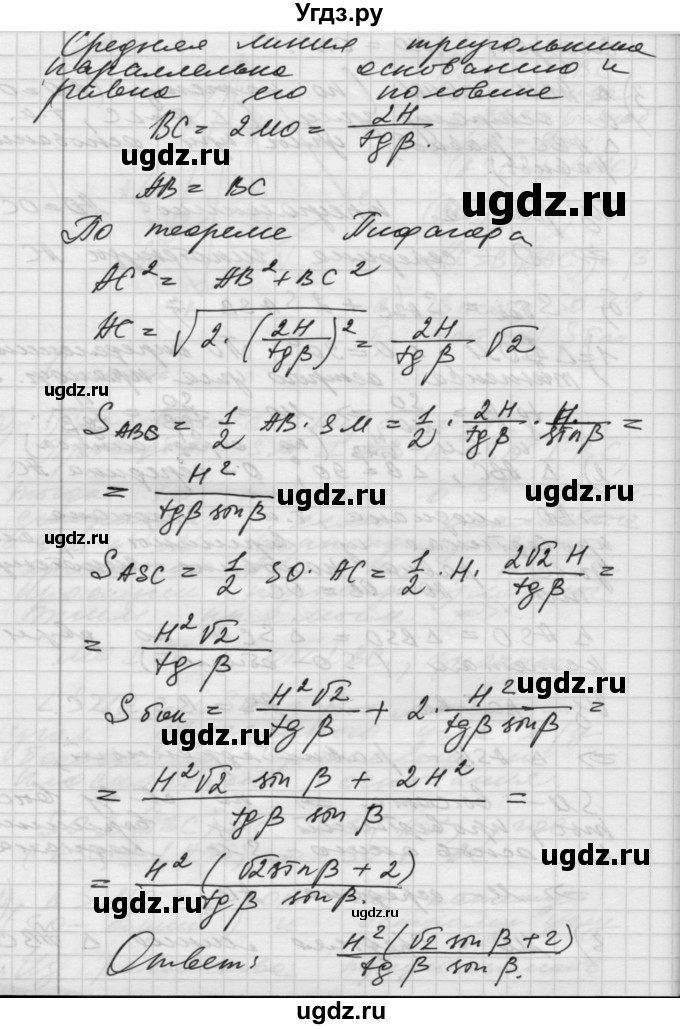 Угдз.ру
Средняя линия треугольника
параллельна основанию и
равна его половине
BC = 2MO = 2H / tgβ.
ugdz.ru ugdz.ru
AB = BC
По теореме Пифагора
AC² = AB² + BC²
AC = √(2·(2H / tgβ)²) = 2H / tgβ √2
ugdz.ru
S ABS = 1/2 AB · SM = 1/2 · 2H / tgβ · H / sinβ =
= H² / tgβ sinβ
ugdz.ru ugdz.ru
ugdz.ru
S ASC = 1/2 SO · AC = 1/2 · H · 2√2 H / tgβ =
= H²√2 / tgβ
ugdz.ru
S бок = H²√2 / tgβ + 2 · H² / tgβ sinβ =
ugdz.ru
= H²√2 sin β + 2H² / tgβ sin β =
ugdz.ru
= H² (√2 sinβ + 2) / tgβ sin β.
ugdz.ru ugdz.ru
Ответ: H² (√2 sin β + 2) / tg β sin β.
ugdz.ru
ugdz.ru